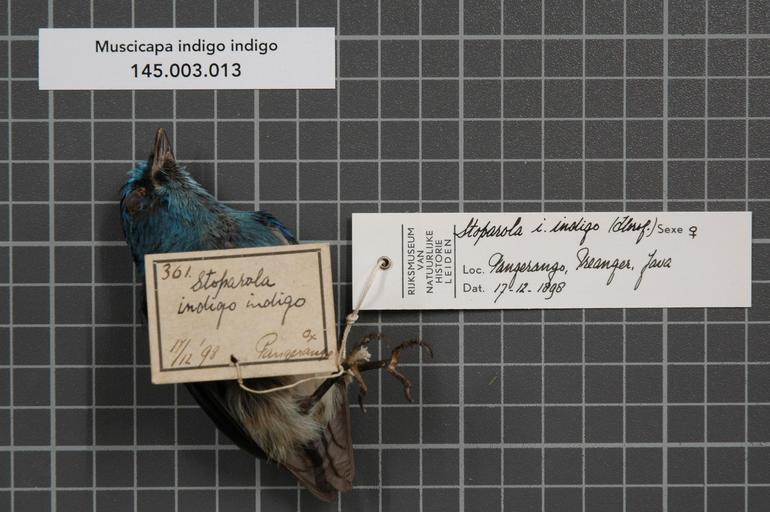 Muscicapa indigo indigo
145.003.013
361. Stoparola
indigo indigo
17/12 '98 Pangerango
RIJKSMUSEUM
VAN
NATUURLIJKE
HISTORIE
LEIDEN
Stoparola i. indigo (Horsf.) Sexe ♀
Loc. Pangerango, Preanger, Java
Dat. 17-12-1898